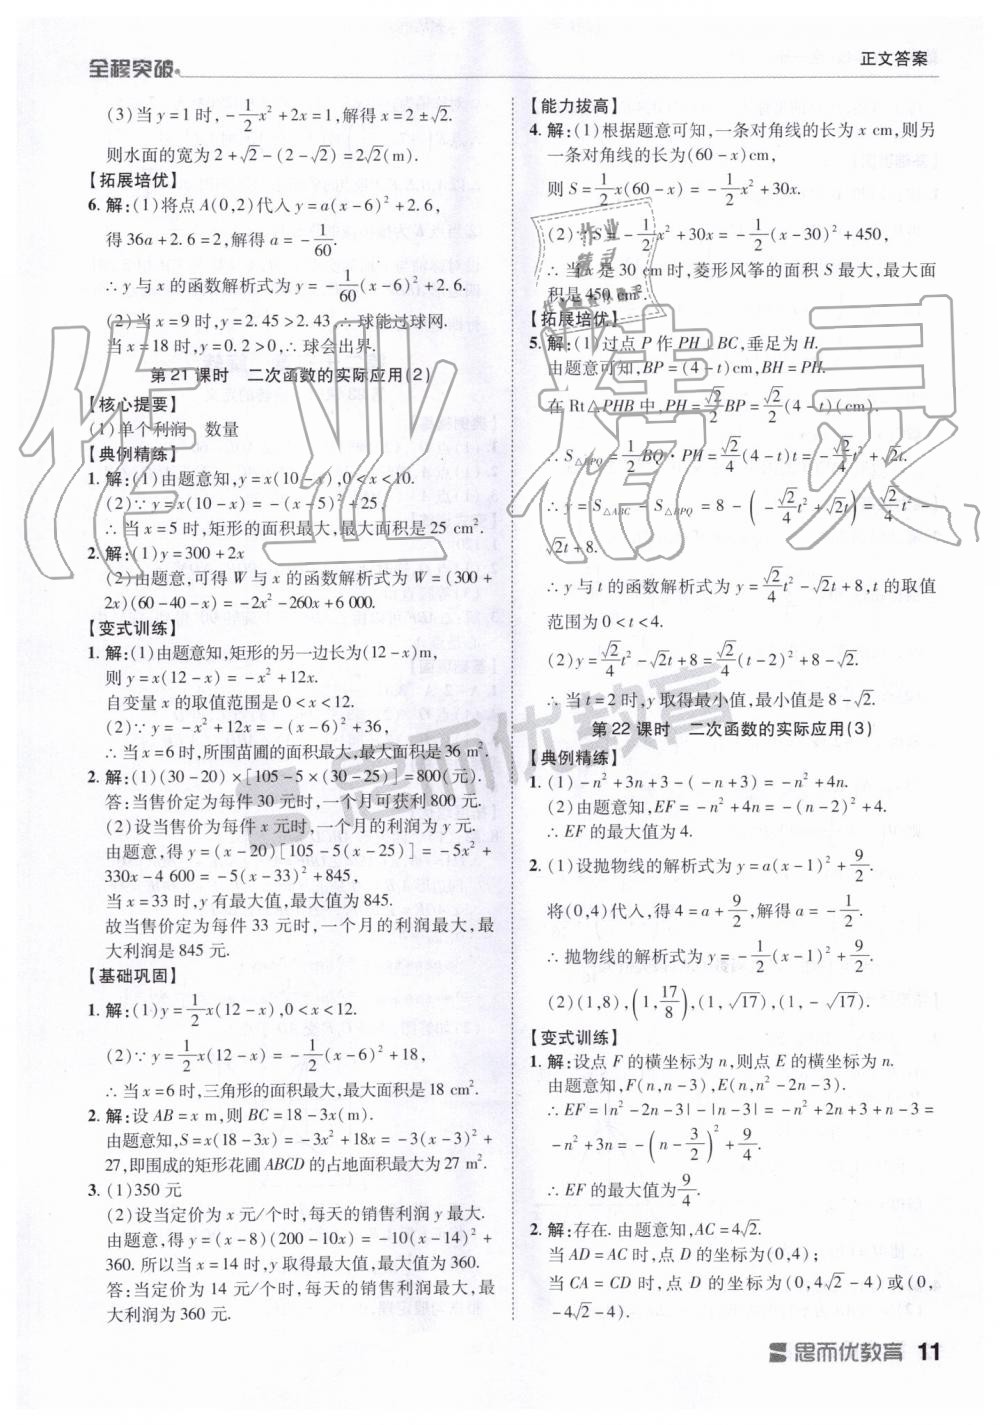 全程突破
正文答案
(3)当y=1时,-1/2x²+2x=1,解得x=2±√2.
则水面的宽为2+√2-(2-√2)=2√2(m).
【拓展培优】
6.解:(1)将点A(0,2)代入y=a(x-6)²+2.6,
得36a+2.6=2,解得a=-1/60.
∴y与x的函数解析式为y=-1/60(x-6)²+2.6.
(2)当x=9时,y=2.45>2.43,∴球能过球网.
当x=18时,y=0.2>0,∴球会出界.
第21课时 二次函数的实际应用(2)
【核心提要】
(1)单个利润 数量
【典例精练】
1.解:(1)由题意知,y=x(10-x),0<x<10.
(2)∵y=x(10-x)=-(x-5)²+25,
∴当x=5时,矩形的面积最大,最大面积是25 cm².
2.解:(1)y=300+2x
(2)由题意,可得W与x的函数解析式为W=(300+
2x)(60-40-x)=-2x²-260x+6 000.
【变式训练】
1.解:(1)由题意知,矩形的另一边长为(12-x)m,
则y=x(12-x)=-x²+12x.
自变量x的取值范围是0<x<12.
(2)y=-x²+12x=-(x-6)²+36,
∴当x=6时,所围苗圃的面积最大,最大面积是36 m².
2.解:(1)(30-20)×[105-5×(30-25)]=800(元).
答:当售价定为每件30元时,一个月可获利800元.
(2)设当售价为每件x元时,一个月的利润为y元.
由题意,得y=(x-20)[105-5(x-25)]=-5x²+
330x-4 600=-5(x-33)²+845,
当x=33时,y有最大值,最大值为845.
故当售价定为每件33元时,一个月的利润最大,最
大利润是845元.
【基础巩固】
1.解:(1)y=1/2x(12-x),0<x<12.
(2)∵y=1/2x(12-x)=-1/2(x-6)²+18,
∴当x=6时,三角形的面积最大,最大面积是18 cm².
2.解:设AB=x m,则BC=18-3x(m).
由题意知,S=x(18-3x)=-3x²+18x=-3(x-3)²+
27,即围成的矩形花圃ABCD的占地面积最大为27 m².
3.(1)350元
(2)设当定价为x元/个时,每天的销售利润y最大.
由题意,得y=(x-8)(200-10x)=-10(x-14)²+
360.所以当x=14时,y取最大值,最大值为360.
答:当定价为14元/个时,每天的销售利润最大,最
大利润为360元.
【能力拔高】
4.解:(1)根据题意可知,一条对角线的长为x cm,则另
一条对角线的长为(60-x)cm,
则S=1/2x(60-x)=-1/2x²+30x.
(2)∵S=-1/2x²+30x=-1/2(x-30)²+450,
∴当x是30 cm时,菱形风筝的面积S最大,最大面
积是450 cm².
【拓展培优】
5.解:(1)过点P作PH⊥BC,垂足为H.
由题意可知,BP=(4-t)cm,BH=PH.
在Rt△PHB中,PH=√2/2BP=√2/2(4-t)(cm).
∴S△BPQ=1/2BQ·PH=√2/4(4-t)t=-√2/4t²+√2t.
∴y=S△ABC-S△BPQ=8-(-√2/4t²+√2t)=√2/4t²-
√2t+8.
∴y与t的函数解析式为y=√2/4t²-√2t+8,t的取值
范围为0<t<4.
(2)y=√2/4t²-√2t+8=√2/4(t-2)²+8-√2.
∴当t=2时,y取得最小值,最小值是8-√2.
第22课时 二次函数的实际应用(3)
【典例精练】
1.(1)-n²+3n+3-(-n+3)=-n²+4n.
(2)由题意知,EF=-n²+4n=-(n-2)²+4.
∴EF的最大值为4.
2.(1)设抛物线的解析式为y=a(x-1)²+9/2.
将(0,4)代入,得4=a+9/2,解得a=-1/2.
∴抛物线的解析式为y=-1/2(x-1)²+9/2.
(2)(1,8),(1,17/8),(1,√17),(1,-√17).
【变式训练】
1.解:设点F的横坐标为n,则点E的横坐标为n.
由题意知,F(n,n-3),E(n,n²-2n-3).
∴EF=|n²-2n-3|-|n-3|=-n²+2n+3+n-3=
-n²+3n=-(n-3/2)²+9/4.
∴EF的最大值为9/4.
2.解:存在.由题意知,AC=4√2.
当AD=AC时,点D的坐标为(0,4);
当CA=CD时,点D的坐标为(0,4√2-4)或(0,
-4√2-4).
思而优教育 11
作业精灵
作业精灵
思而优教育